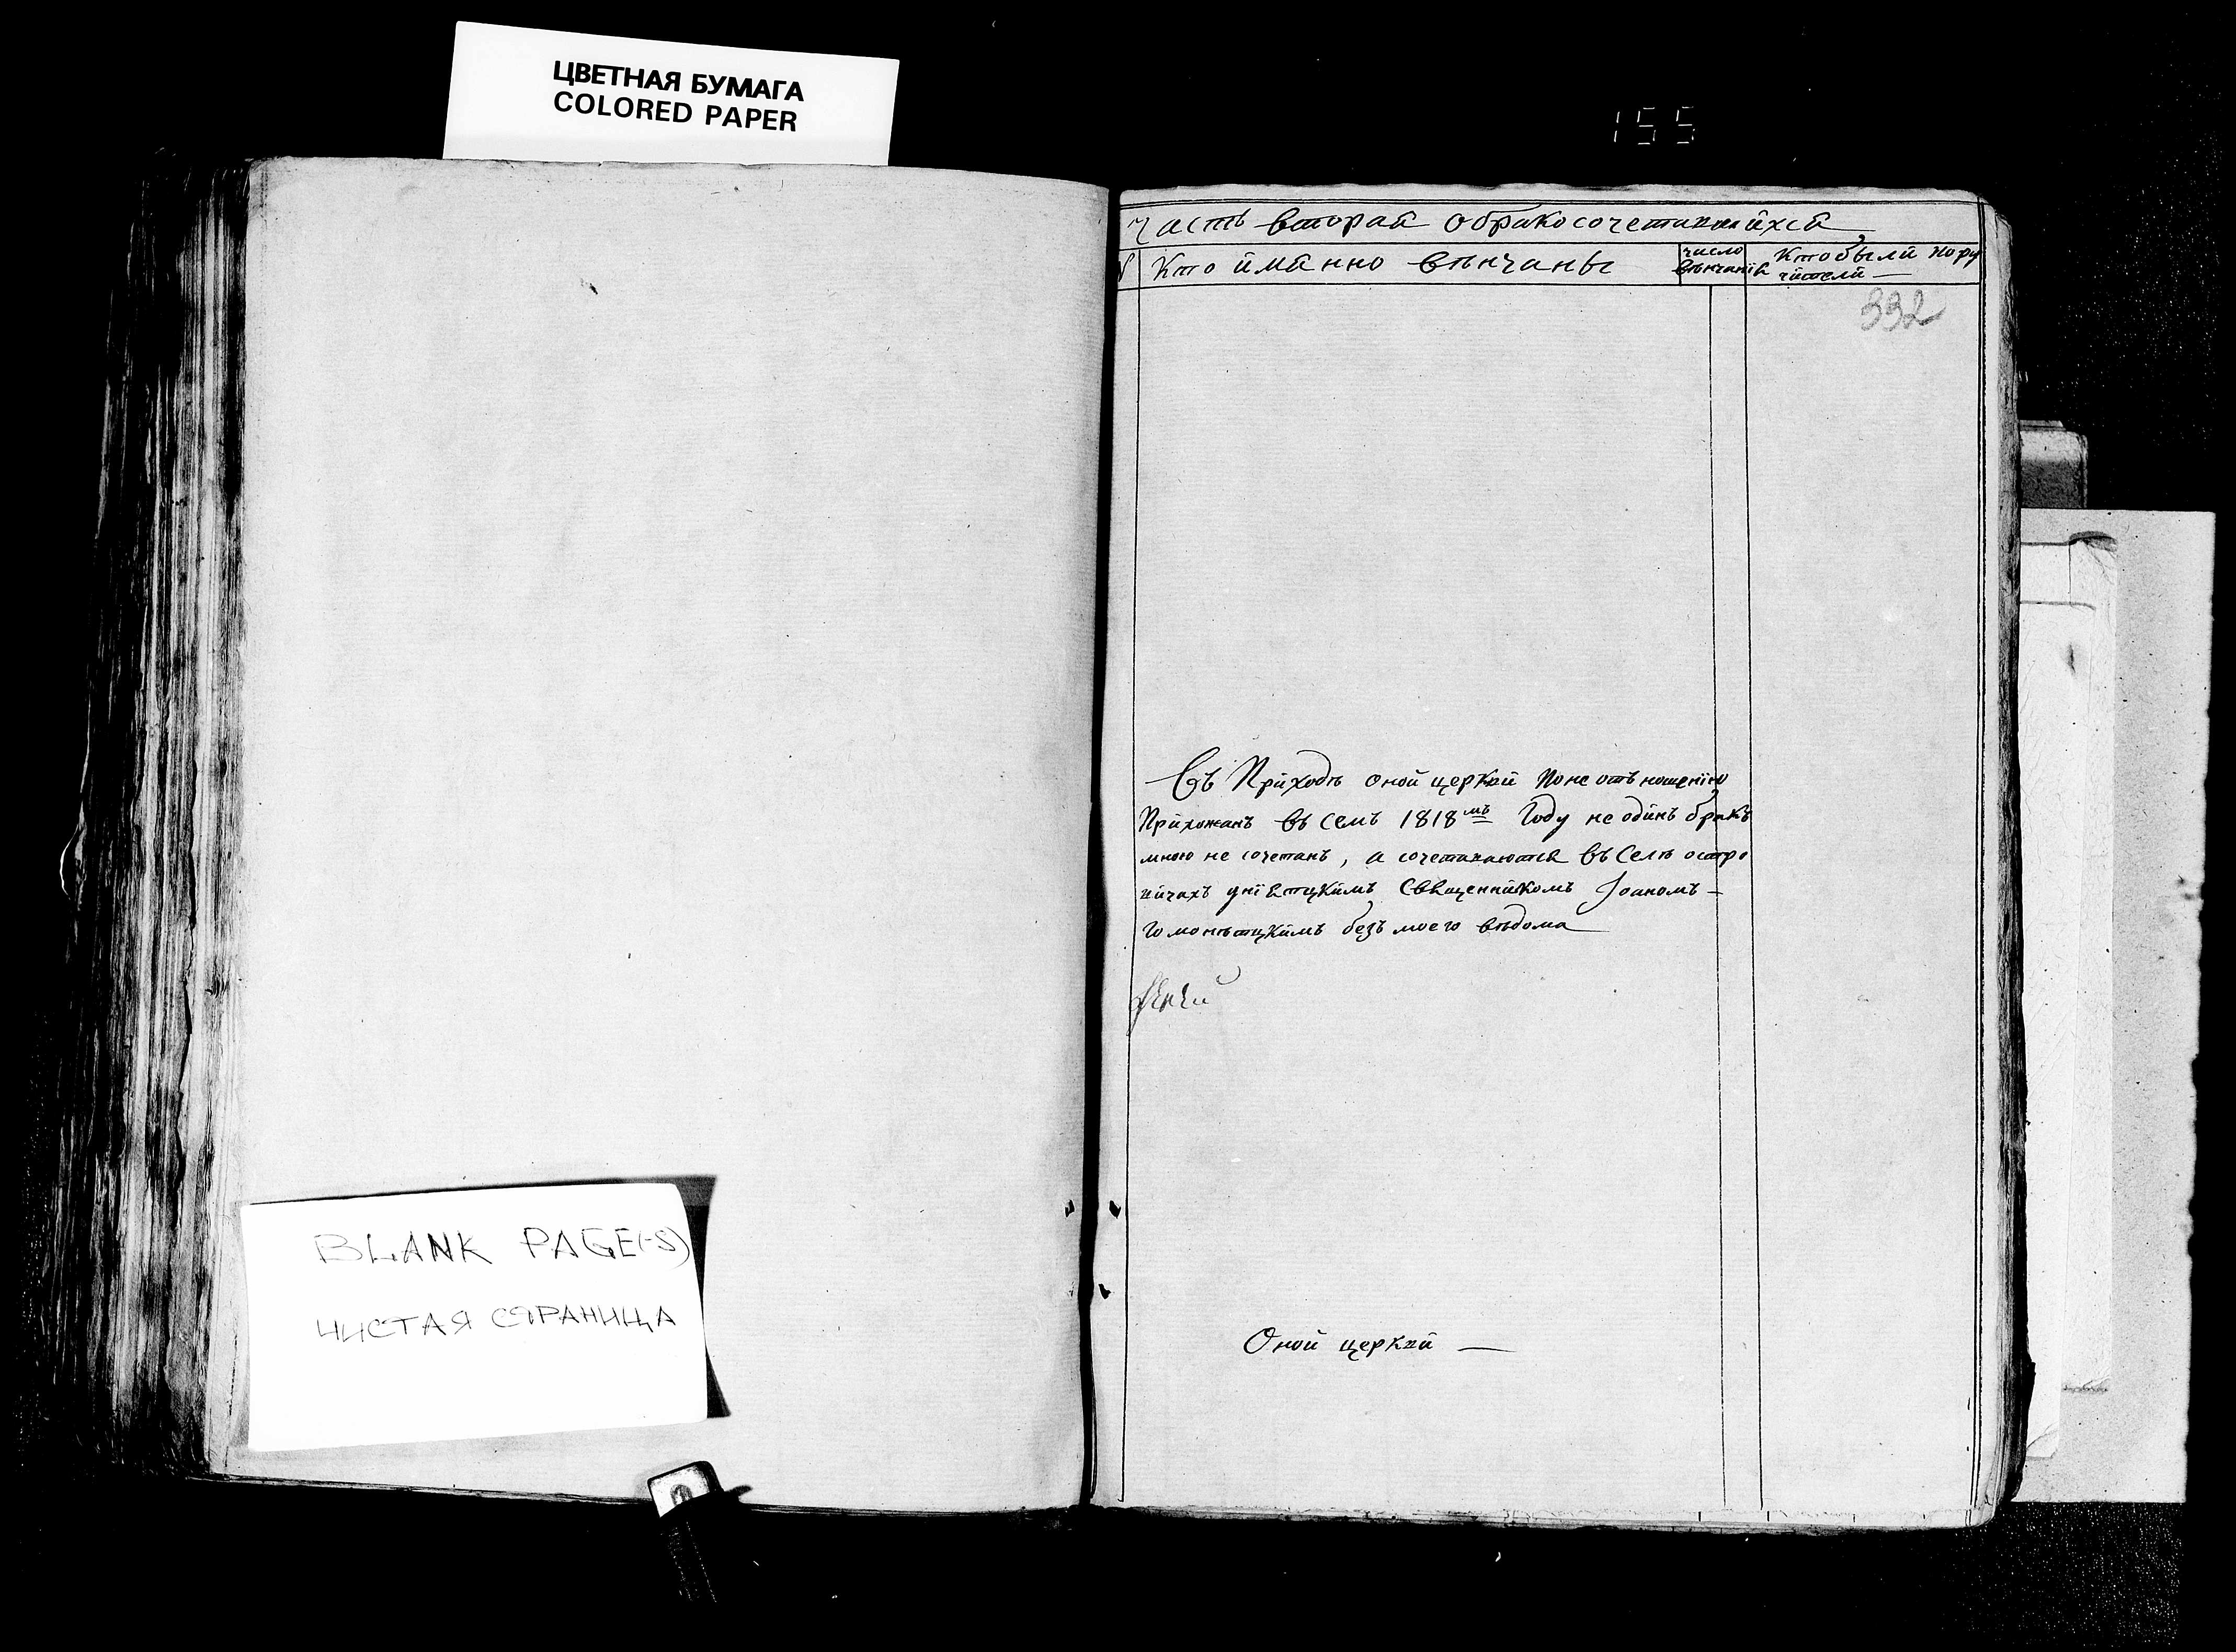 ЦВЕТНАЯ БУМАГА
COLORED PAPER
155
Часть вторая обракосочетавшихся
N Кто имянно вѣнчаны
число вѣнчанія
Кто были пору
чители —
332
Въ Приходѣ оной церкви по не отъношенію
Прихожанъ въ семъ 1818мъ Году не одинъ бракъ
мною не сочетанъ, а сочетаваются въ Селѣ остро
Священникомъ Іоаномъ —
безъ моего вѣдома
Оной церкви —
BLANK PAGE(-S)
ЧИСТАЯ СТРАНИЦА